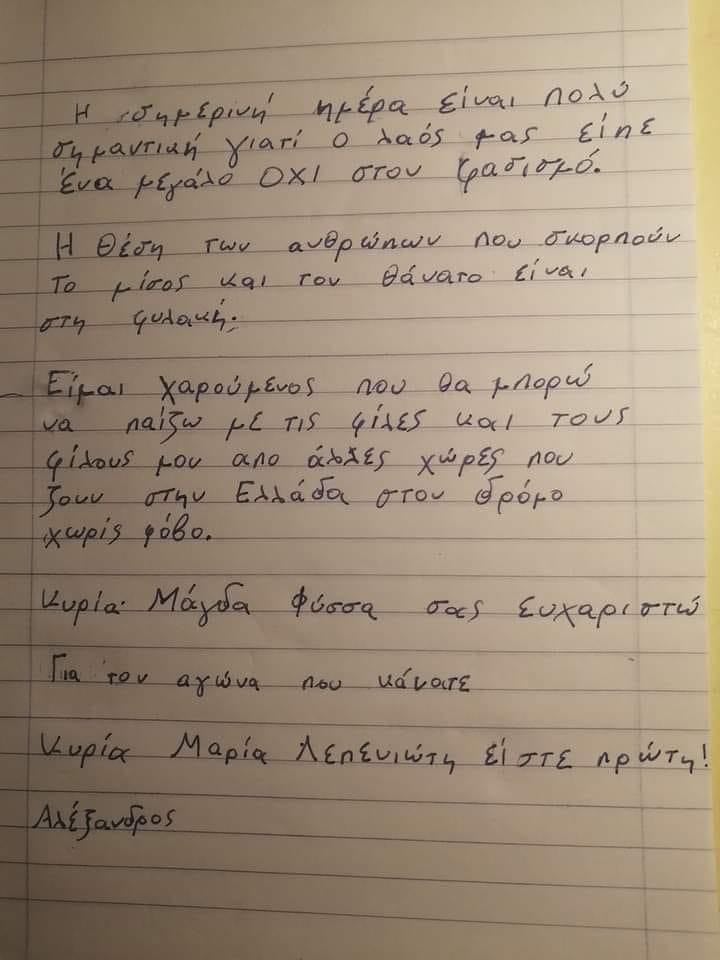 Η σημερινή ημέρα είναι πολύ
σημαντική γιατί ο λαός μας είπε
ένα μεγάλο ΟΧΙ στον φασισμό.
Η θέση των ανθρώπων που σκορπούν
το μίσος και τον θάνατο είναι
στη φυλακή.
Είμαι χαρούμενος που θα μπορώ
να παίζω με τις φίλες και τους
φίλους μου απο άλλες χώρες που
ζουν στην Ελλάδα στον δρόμο
χωρίς φόβο.
Κυρία Μάγδα Φύσσα σας ευχαριστώ
Για τον αγώνα που κάνατε
Κυρία Μαρία Λεπενιώτη είστε πρώτη!
Αλέξανδρος